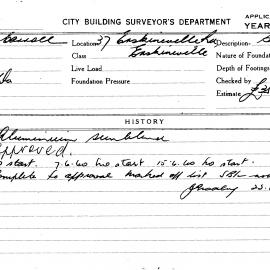 CITY BUILDING SURVEYOR'S DEPARTMENT
APPLIC
YEAR
Location 37 Erskineville Description
Class Erskineville Nature of Founda
Live Load Depth of Footings
Foundation Pressure Checked by
Estimate
HISTORY
Aluminium sunblind
Approved.
start. 7.6.60 no start 15.6.60 no start.
omplete to approval marked off list